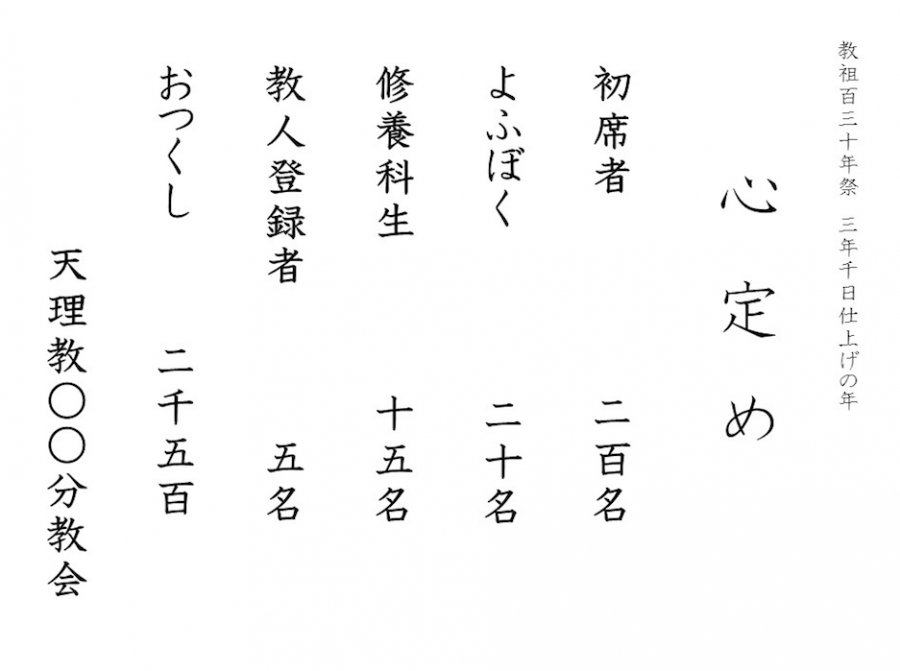 教祖百三十年祭 三年千日仕上げの年
心定め
初席者 二百名
よふぼく 二十名
修養科生 十五名
教人登録者 五名
おつくし 二千五百
天理教〇〇分教会